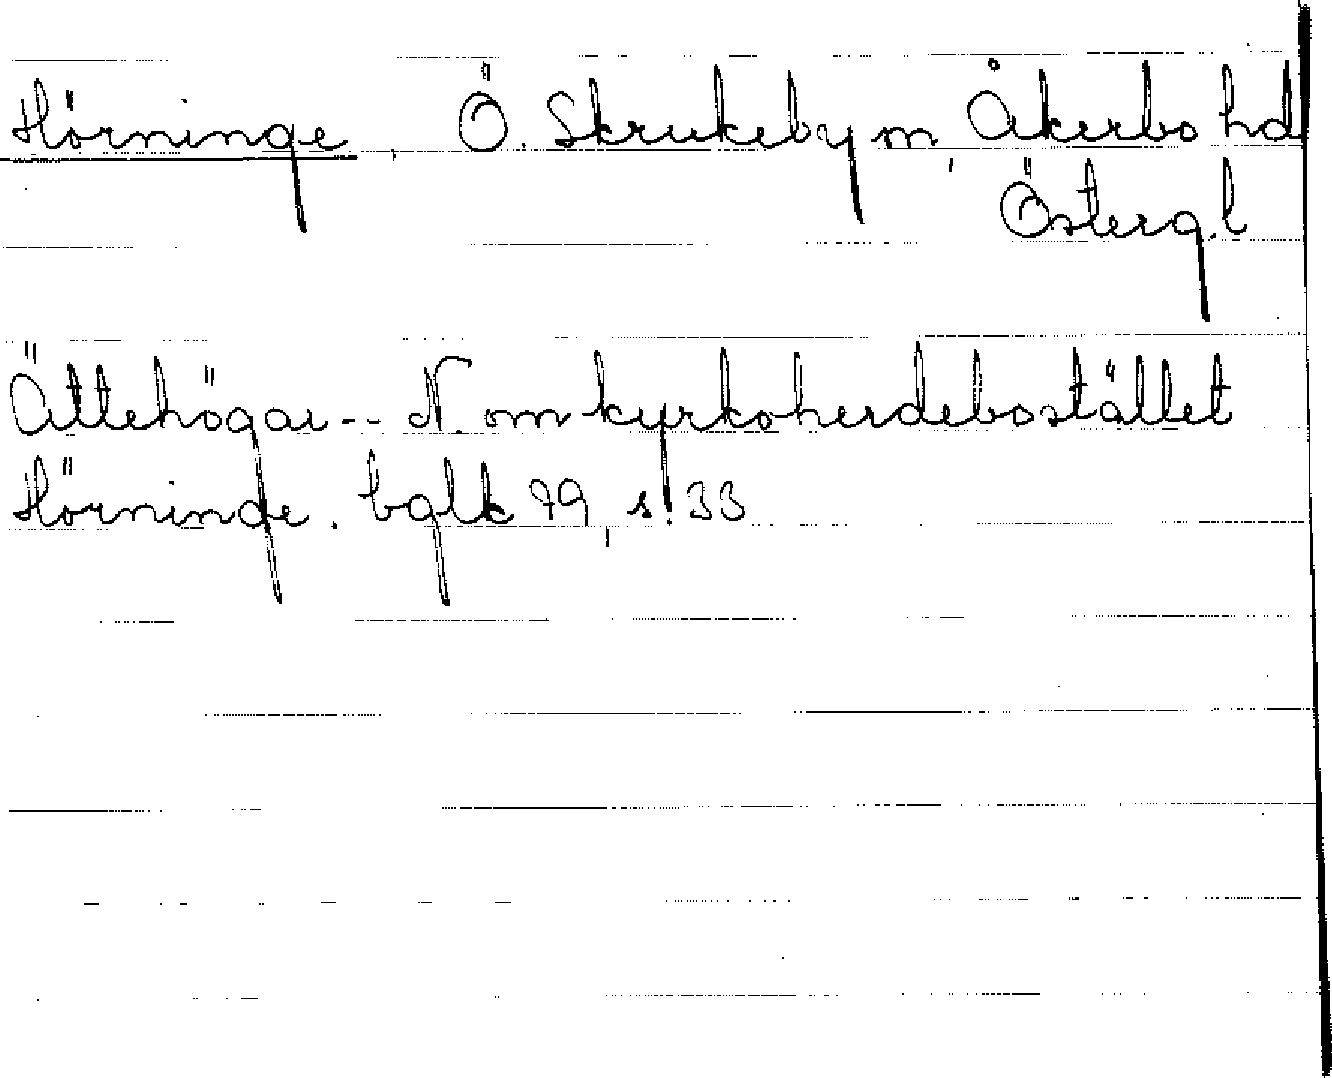 Hörninge, Ö. Skrukeby sn, Åkerbo hd
Östergl
Ättehögar -- N. om kyrkoherdebostället
Hörninge. bglk 79, s. 33